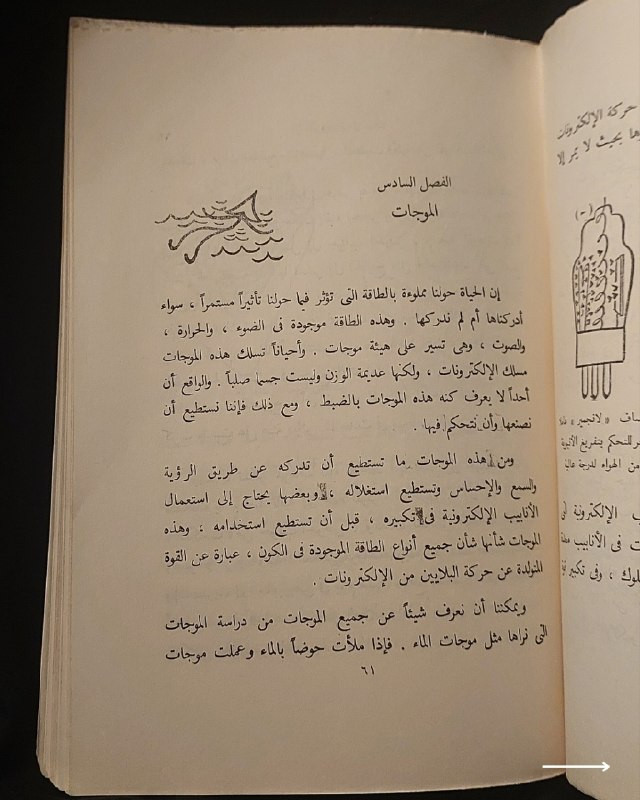 الفصل السادس
الموجات
إن الحياة حولنا مملوءة بالطاقة التى تؤثر فيما حولنا تأثيراً مستمراً ، سواء
أدركناها أم لم ندركها . وهذه الطاقة موجودة فى الضوء ، والحرارة ،
والصوت ، وهى تسير على هيئة موجات . وأحياناً تسلك هذه الموجات
مسلك الإلكترونات ، ولكنها عديمة الوزن وليست جسما صلباً . والواقع أن
أحداً لا يعرف كنه هذه الموجات بالضبط ، ومع ذلك فإننا نستطيع أن
نصنعها وأن نتحكم فيها .
ومن هذه الموجات ما تستطيع أن تدركه عن طريق الرؤية
والسمع والإحساس وتستطيع استغلاله ، وبعضها يحتاج إلى استعمال
الأنابيب الإلكترونية فى تكبيره ، قبل أن تستطيع استخدامه ، وهذه
الموجات شأنها شأن جميع أنواع الطاقة الموجودة فى الكون ، عبارة عن القوة
المتولدة عن حركة البلايين من الإلكترونات .
ويمكننا أن نعرف شيئاً عن جميع الموجات من دراسة الموجات
التى نراها مثل موجات الماء . فإذا ملأت حوضاً بالماء وعملت موجات
٦١
حركة الإلكترونات
بحيث لا يمر إلا
(-)
« لانجمير »
للتحكم بتفريغ الأنبوبة
من الهواء لدرجة عالية
الإلكترونية
فى الأنابيب
، وفى تكبير